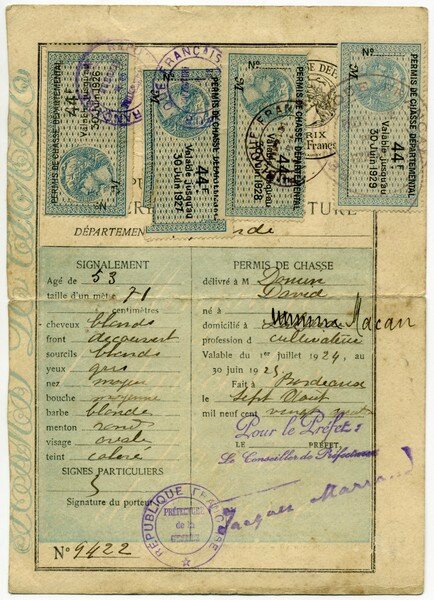 PERMIS DE CHASSE DÉPARTEMENTAL
44F
Valable jusqu'au
30 Juin 1926
N°
PERMIS DE CHASSE DÉPARTEMENTAL
44F
Valable jusqu'au
30 Juin 1927
PERMIS DE CHASSE DÉPARTEMENTAL
44F
Valable jusqu'au
30 Juin 1928
N°
PERMIS DE CHASSE DÉPARTEMENTAL
44F
Valable jusqu'au
30 Juin 1929
PRIX
Francs
DÉPARTEMENT
SIGNALEMENT
Agé de 53
taille d'un mètre 71
centimètres
cheveux blonds
front découvert
sourcils blonds
yeux gris
nez moyen
bouche moyenne
barbe blonde
menton rond
visage ovale
teint coloré
SIGNES PARTICULIERS
Signature du porteur
N° 9422
PERMIS DE CHASSE
délivré à M
David
né à
domicilié à Macau
profession d cultivateur
Valable du 1er juillet 1924, au
30 juin 1925
Fait à Bordeaux
le Sept Août
mil neuf cent vingt
Pour le Préfet
LE PRÉFET,
Le Conseiller de Préfecture
RÉPUBLIQUE FRANÇAISE
PRÉFECTURE
de la
GIRONDE